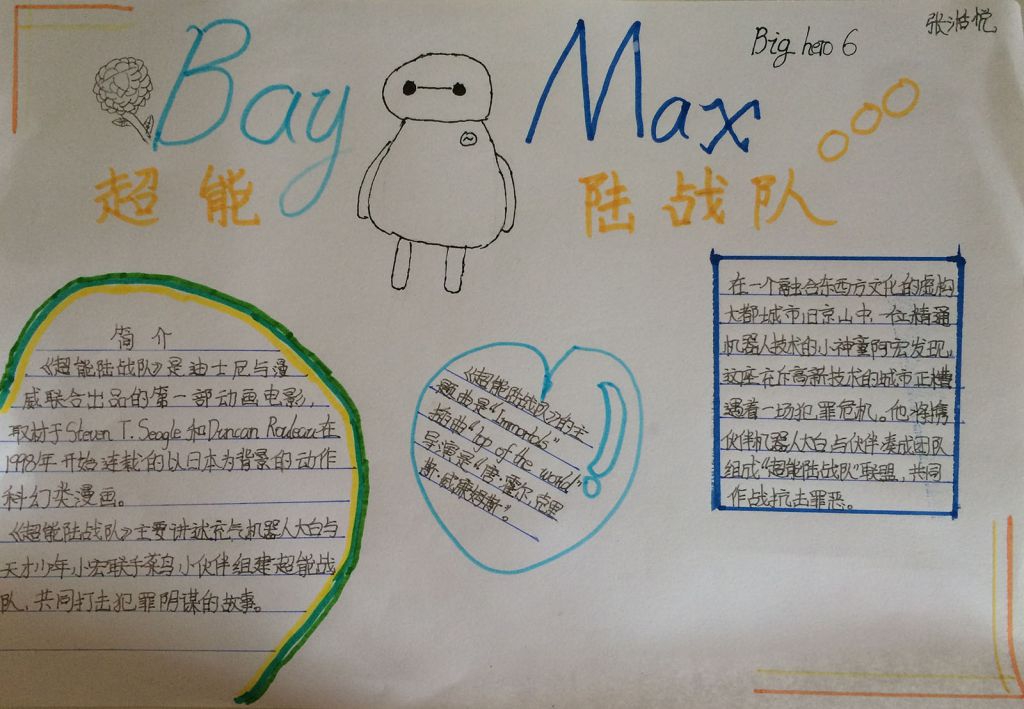 Bay Max
Big hero 6
张
超能 陆战队
简介
《超能陆战队》是迪士尼与漫
威联合出品的第一部动画电影,
取材于Steven T. Seagle和Duncan Rouleau在
1998年开始连载的以日本为背景的动作
科幻类漫画。
《超能陆战队》主要讲述充气机器人大白与
天才少年小宏联手菜鸟小伙伴组建超能战
队,共同打击犯罪阴谋的故事。
《超能陆战队》的主
题曲是"Immortals"
插曲"top of the world"
导演是"唐·霍尔,克里
斯·威廉姆斯"。
在一个融合东西方文化的虚构
大都城市旧京山中,一位精通
机器人技术的小神童阿宏发现,
这座充斥高新技术的城市正遭
遇着一场犯罪危机。他将携
伙伴机器人大白与伙伴凑成团队
组成"超能陆战队"联盟,共同
作战抗击罪恶。